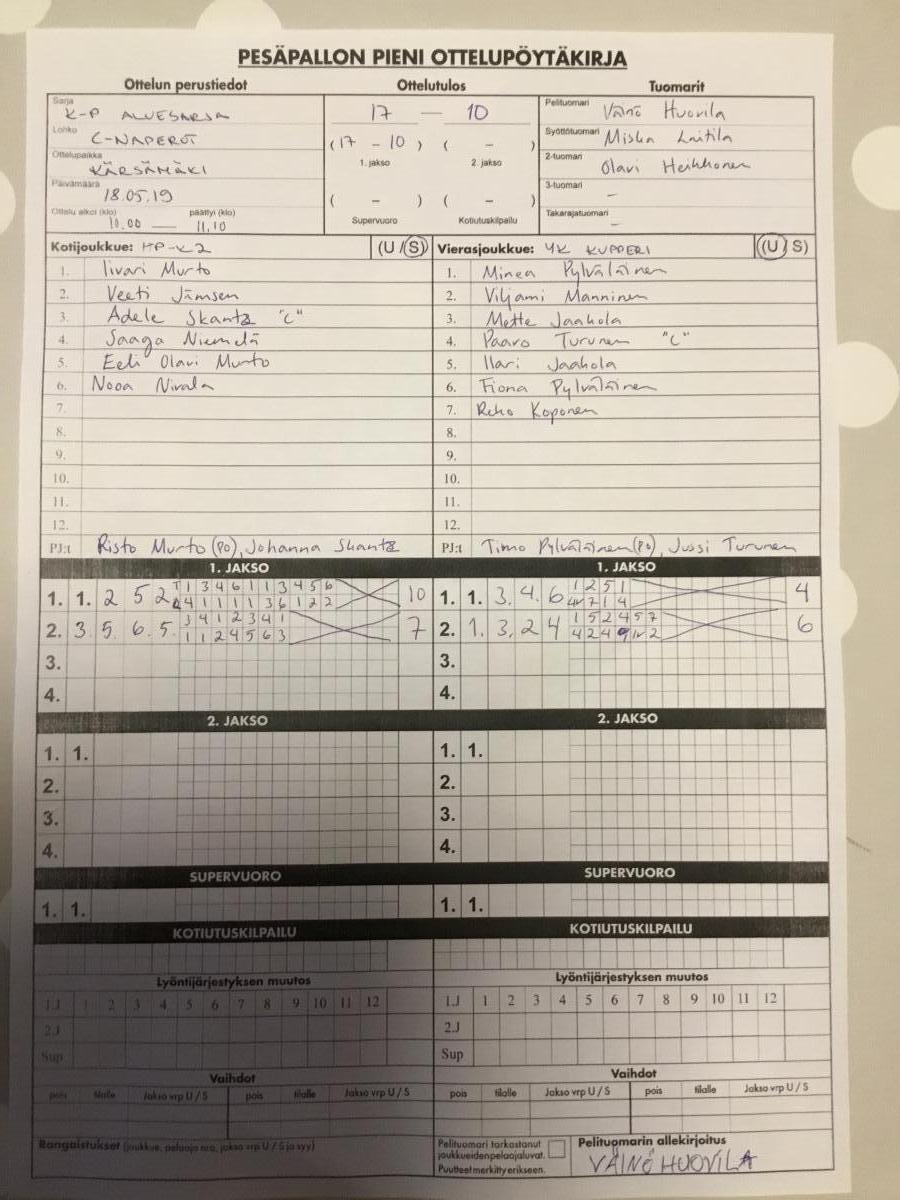 PESÄPALLON PIENI OTTELUPÖYTÄKIRJA
Ottelun perustiedot Ottelutulos Tuomarit
Sarja K-P ALUESARJA
Lohko C-NAPEROT
Ottelupaikka KÄRSÄMÄKI
Päivämäärä 18.05.19
Ottelu alkoi (klo) päättyi (klo)
10.00 — 11.10
17 — 10
(17 - 10) ( - )
1. jakso 2. jakso
( - ) ( - )
Supervuoro Kotiutuskilpailu
Pelituomari Väinö Huovila
Syöttötuomari Miska Laitila
2-tuomari Olavi Heikkonen
3-tuomari –
Takarajatuomari –
Kotijoukkue: HP-K2 (U/S)
1. Iivari Murto
2. Veeti Jämsen
3. Adele Skantz "C"
4. Saaga Niemelä
5. Eeli Olavi Murto
6. Nooa Nivala
7.
8.
9.
10.
11.
12.
PJ:t Risto Murto (PO), Johanna Skantz
Vierasjoukkue: YK KUPPERI (U/S)
1. Minea Pylväläinen
2. Viljami Manninen
3. Mette Jaakola
4. Paavo Turunen "C"
5. Ilari Jaakola
6. Fiona Pylväläinen
7. Reko Koponen
8.
9.
10.
11.
12.
PJ:t Timo Pylväläinen (PO), Jussi Turunen
1. JAKSO 1. JAKSO
1. 1. 2 5 2 1 3 4 6 1 1 3 4 5 6 10
4 1 1 1 1 3 6 1 2 2
2. 3. 5. 6. 5. 3 4 1 2 3 4 1 7
1 1 2 4 5 6 3
3.
4.
1. 1. 3. 4. 6 1 2 5 1 4
7 1 4
2. 1. 3, 2 4 1 5 2 4 5 7 6
4 2 4 9 2
3.
4.
2. JAKSO 2. JAKSO
1. 1. 1. 1.
2. 2.
3. 3.
4. 4.
SUPERVUORO SUPERVUORO
1. 1. 1. 1.
KOTIUTUSKILPAILU KOTIUTUSKILPAILU
Lyöntijärjestyksen muutos Lyöntijärjestyksen muutos
1.J 1 2 3 4 5 6 7 8 9 10 11 12 1.J 1 2 3 4 5 6 7 8 9 10 11 12
2.J 2.J
Sup Sup
Vaihdot Vaihdot
pois tilalle Jakso vrp U / S pois tilalle Jakso vrp U / S pois tilalle Jakso vrp U / S pois tilalle Jakso vrp U / S
Rangaistukset (joukkue, pelaaja nro, jakso vrp U / S ja syy)
Pelituomari tarkastanut
joukkueidenpelaajaluvat.
Puutteet merkitty erikseen.
Pelituomarin allekirjoitus
VÄINÖ HUOVILA